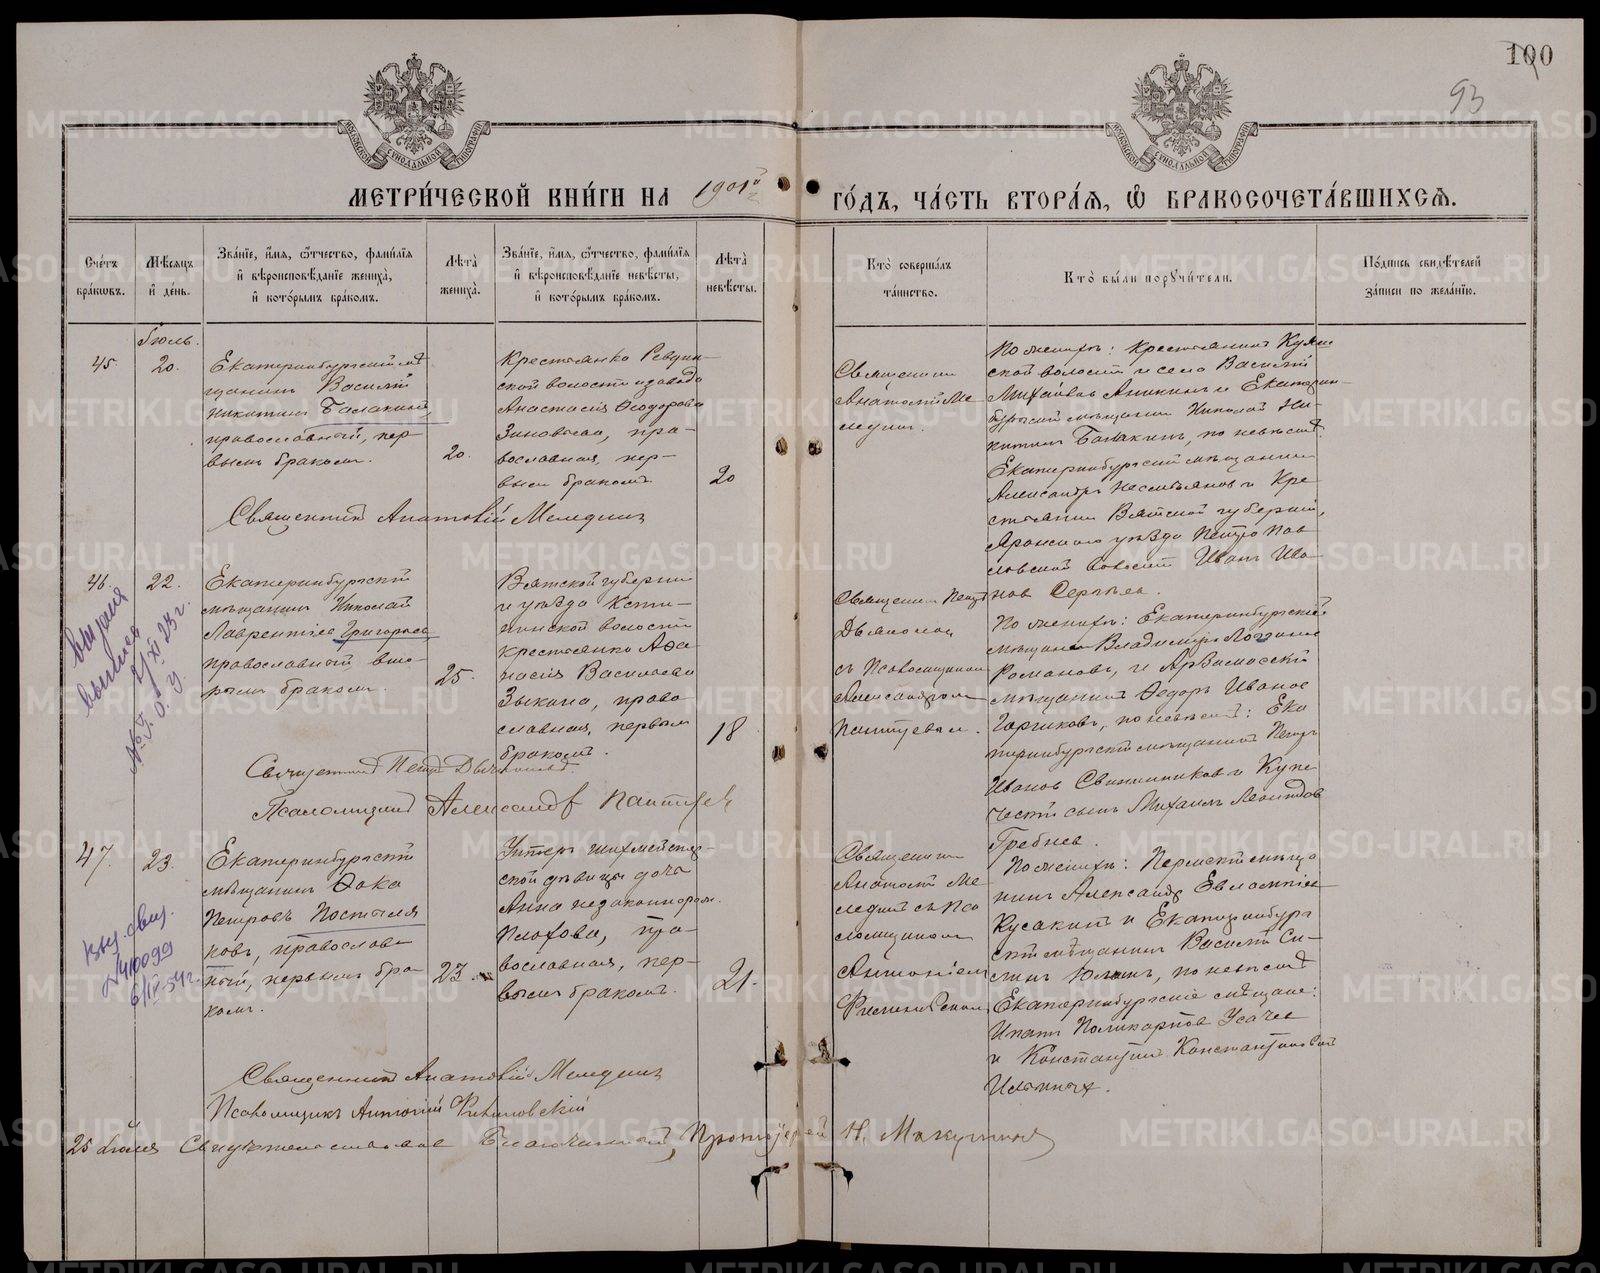 100
93
МЕТРИ́ЧЕСКОЙ КНИ́ГИ НА 1901й
ГО́ДЪ, ЧА́СТЬ ВТОРА́Я, Ѽ БРАКОСОЧЕТА́ВШИХСЯ.
Сче́тъ
бра́кωвъ.
Мѣ́сяцъ
и҆ де́нь.
Зва́нїе, и҆́мя, ѻ҆́тчество, фами́лїя
и҆ вѣроисповѣ́данїе жениха̀,
и҆ кото́рымъ бра́комъ.
Лѣ́та
жениха̀.
Зва́нїе, и҆́мя, ѻ҆́тчество, фами́лїя
и҆ вѣроисповѣ́данїе невѣ́сты,
и҆ кото́рымъ бра́комъ.
Лѣ́та
невѣ́сты.
Кто̀ соверша́лъ
та́инство.
Кто̀ бы́ли порꙋчи́тели.
По́дпись свидѣ́телей
за́писи по жела́нїю.
Іюль.
45.
20.
Екатеринбургскій мѣ
щанинъ Василій
Никитинъ Балакинъ,
православный, пер
вымъ бракомъ.
20.
Крестьянка Ревдин-
ской волости и завода
Анастасія Ѳеодорова
Зиновьева, пра-
вославная, пер-
вымъ бракомъ.
20
Священникъ
Анатолій Ме
ледин.
По женихѣ: крестьянинъ
ской волости и села Василій
Михайловъ Аникинъ и Екатерин-
бургскій мѣщанинъ Николай Ни-
китинъ Балакинъ, по невѣстѣ:
Екатеринбургскій мѣщанинъ
Александръ Несмѣяновъ и Кре
стьянинъ Вятской губерніи,
Яранского уѣзда Петро Пав
ловской волости Иванъ Ива-
новъ Сергѣевъ.
Священникъ Анатолій Меледин
46.
22.
Екатеринбургскій
мѣщанинъ Николай
Лаврентіевъ Григорьевъ
православный вто-
рымъ бракомъ.
25.
Вятской губерніи
и уѣзда Ксти-
нинской волости
крестьянка Аѳа
насія Васильева
Зыкина, право
славная, первымъ
бракомъ.
18
Священникъ Петръ
Дьяконовъ
съ Псаломщикомъ
Александромъ
По женихѣ: Екатеринбургскій
мѣщанинъ Владиміръ Логиновъ
Романовъ, и Арзамасскій
мѣщанинъ Ѳедоръ Ивановъ
по невѣстѣ: Ека
теринбургскій мѣщанинъ Петръ
Ивановъ и Купе-
ческій сынъ Михаилъ Леонидовъ
Гребневъ.
Священникъ Петръ Дьяконовъ
Псаломщикъ Александръ
№
47.
23.
Екатеринбургскій
мѣщанинъ Ѳока
Петровъ Постыля
ковъ, православ
ный, первымъ бра
комъ.
23.
Унтеръ шихмейстер-
ской дѣвицы дочь
Анна незаконнорож.
Плохова, пра-
вославная, пер-
вымъ бракомъ.
21.
Священникъ
Анатолій Ме
ледин съ Пса
ломщикомъ
Антоніемъ
По женихѣ: Пермскій мѣща
нинъ Александръ Евлампіевъ
Кусакинъ и Екатеринбург
скій мѣщанинъ Василій Си-
по невѣстѣ
Екатеринбургскіе мѣщане:
Ипатъ Поликарповъ Усачев
и Константинъ Константиновъ
№ 410099
6/IV-54г.
Священникъ Анатолій Меледин
Псаломщикъ Антоній
25 Іюля Свидѣтельствовалъ Благочинный, Протоіерей Н.
METRIKI.GASO-URAL.RU